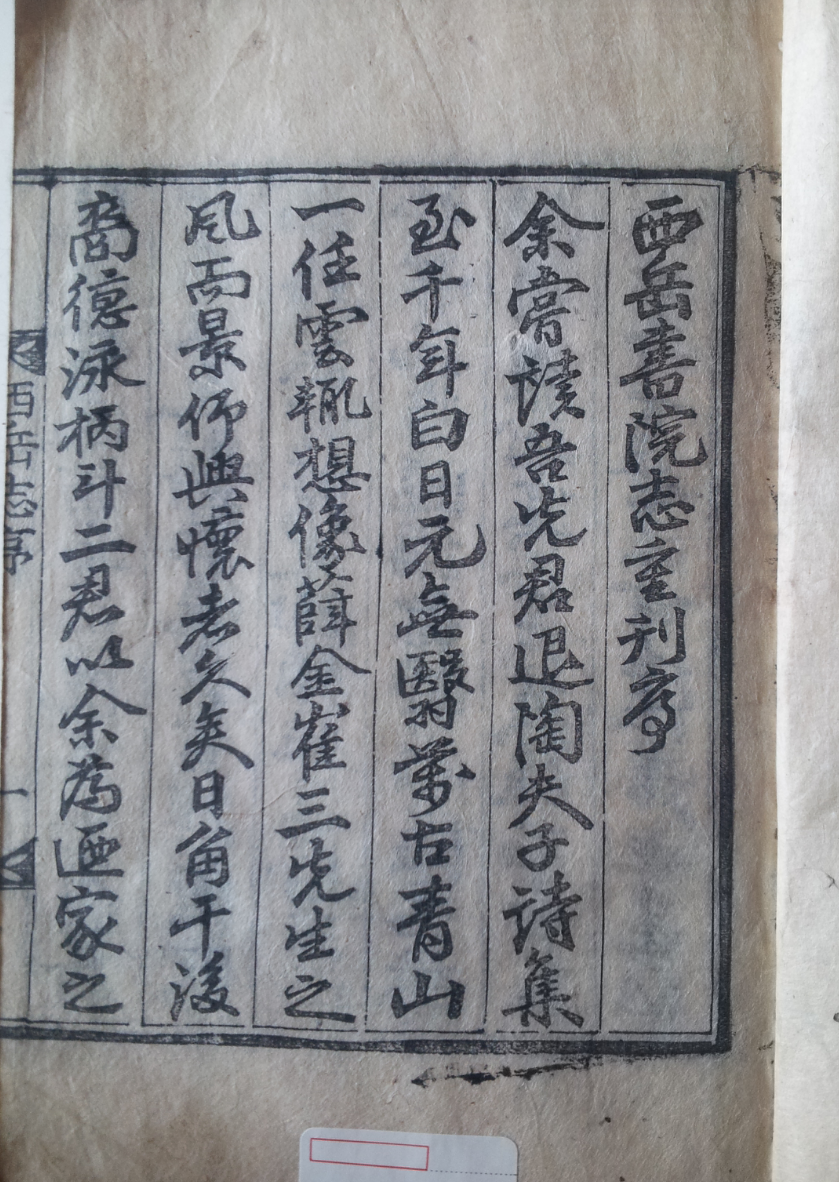 西岳書院志重刊序
余嘗讀吾先君退陶夫子詩集
至千年白日元無翳萬古青山
一任雲輒想像薛金崔三先生之
風而景仰興懷者久矣日角干後
裔德泳柄斗二君以余爲迺家之
西岳志序
一